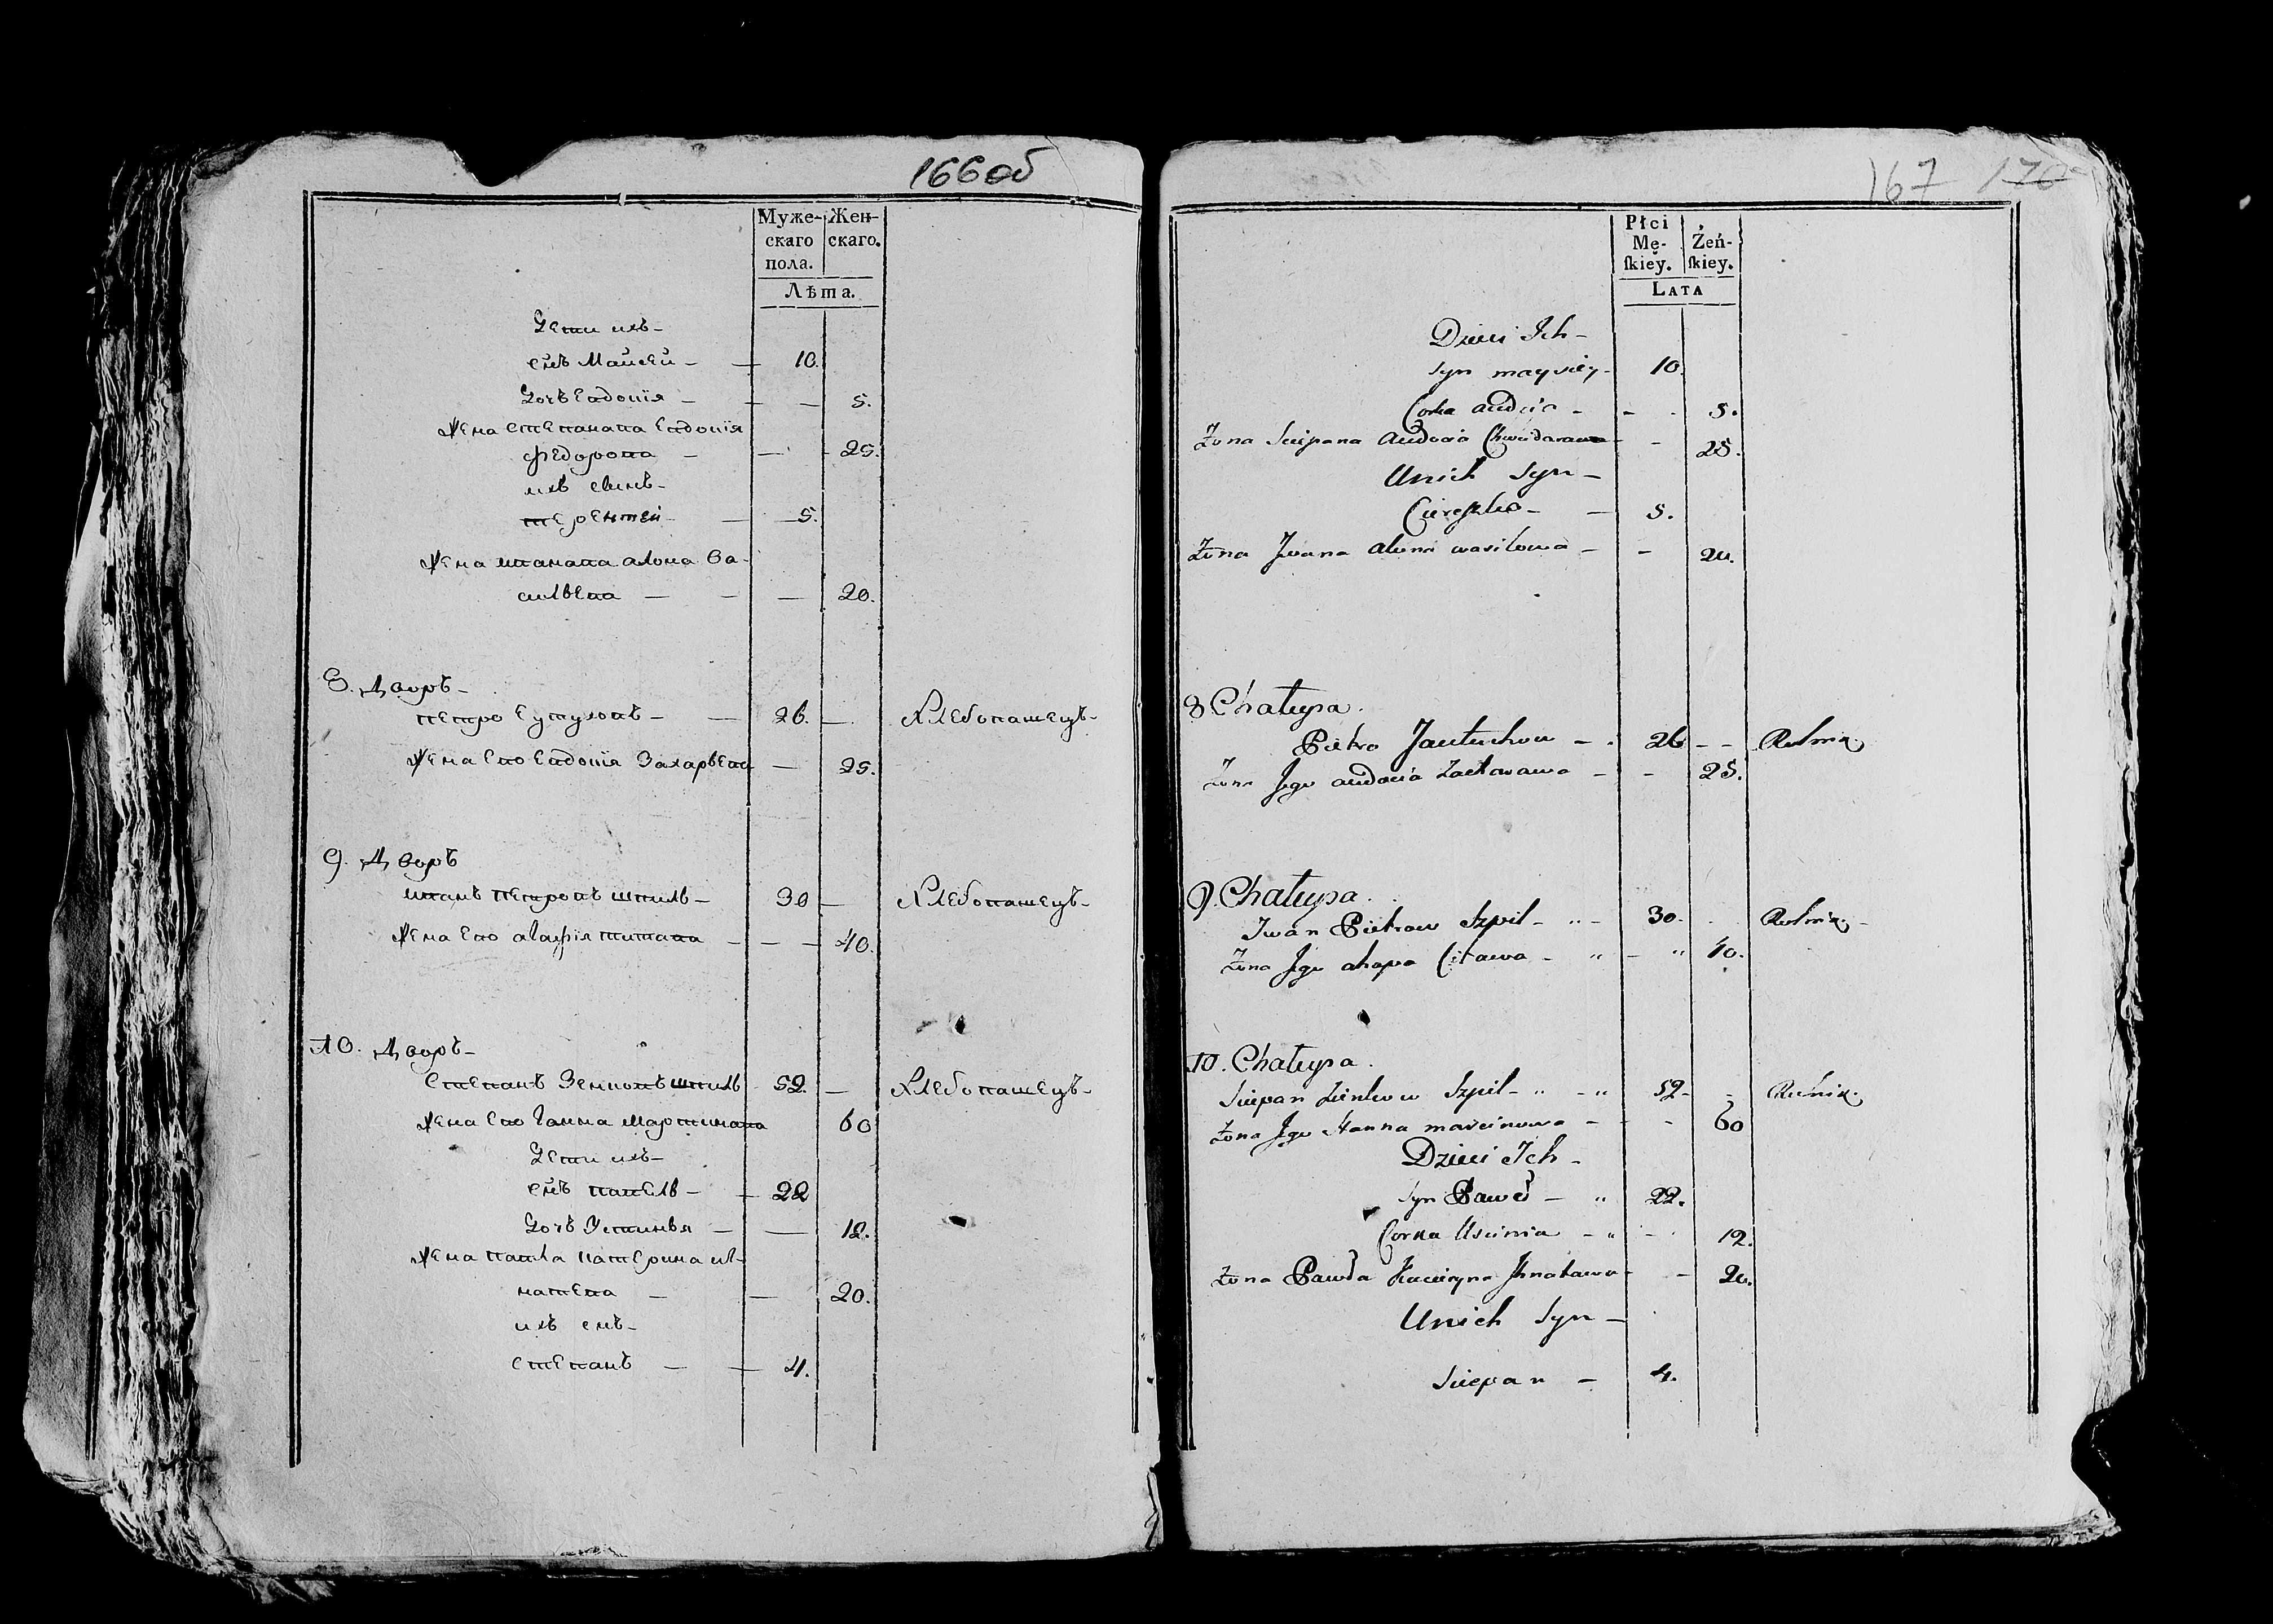 166об
Муже-
скаго
пола.
Жен-
скаго.
Лѣта.
Дети ихъ-
снъ Майсей - 10.
Дочъ Евдокія - 5.
Жена Степанава Евдокія
Федорова - 25.
ихъ сынъ-
терентей - 5.
Жена ивана алона Ва-
сильева - 20.
8. Дворъ-
петро Евтуховъ - 26. Хлебопашецъ-
Жена Ево Евдокія Захарьева 25.
9. Дворъ
иванъ петровъ шпиль- 30 Хлебопашецъ-
Жена Ево агафія титава - 40.
10. Дворъ-
Степанъ Зенковъ шпиль 52. Хлебопашецъ-
Жена Ево Ганна Мартинава 60
Дети ихъ-
снъ павелъ - 22
Дочъ Устинья - 12.
Жена павла катерина иг-
натева - 20.
ихъ снъ-
степанъ - 4.
167 170
Płci
Mę-
skiey.
Żeń-
skiey.
LATA
Dzieci Ich -
Syn maysiey - 10.
Corka audocia - 5.
Żona Sciepana audocia Chwiedarawa - 25.
Unich Syn -
Cireszko - 5.
Żona Jwana aluna wasilowa - 20.
8 Chałupa.
Pietro Jautuchow - 26 - - Rolnik.
Żona Jego audocia Zacharawa - 25.
9. Chałupa.
Jwan Pietrow Szpil - 30. Rolnik. -
Żona Jego ahapa Citawa - 40.
10. Chałupa.
Sciepan Zienkow Szpil - 52 - Rolnik.
Żona Jego Hanna marcinowa - 60
Dzieci Ich -
Syn Paweł - 22.
Corka Uscinia - 12.
Żona Pawła Kaciryna Jhnatawa - 20.
Unich Syn -
Sciepan - 4.